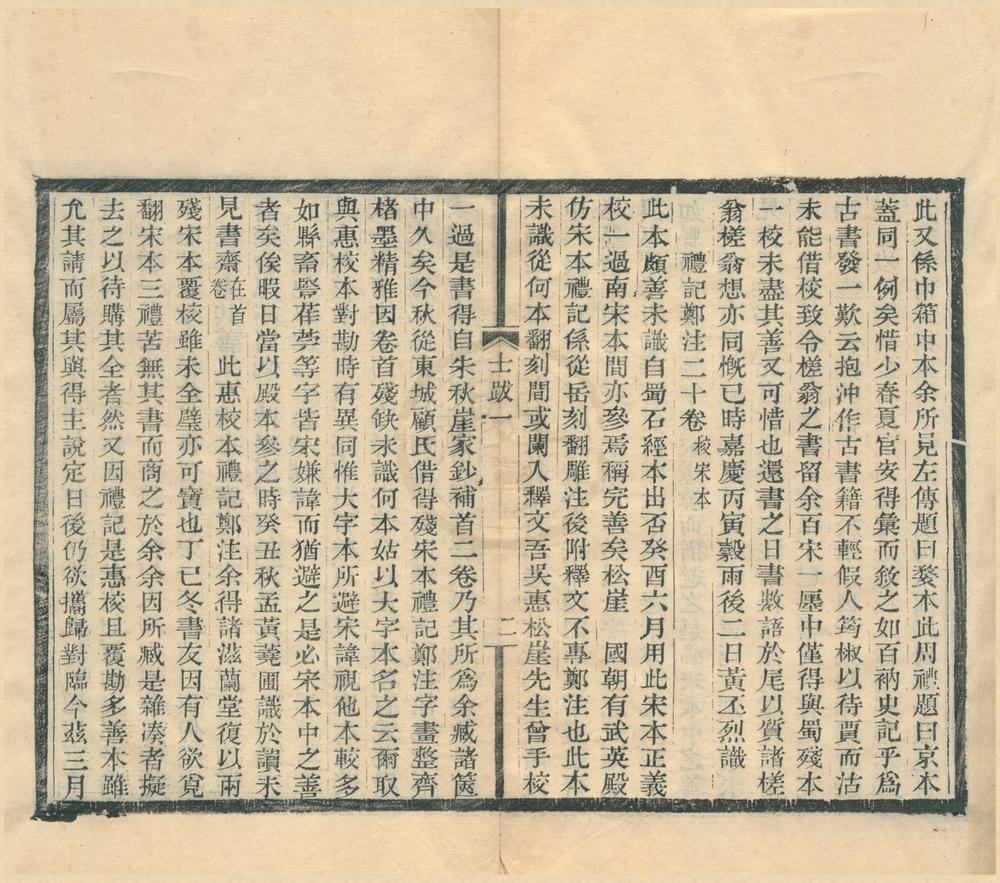 此又係巾箱中本余所見左傳題曰婺本此周禮題曰京本
蓋同一例矣惜少春夏官安得彙而敘之如百衲史記乎爲
古書發一歎云抱沖作古書籍不輕假人筠椒以待賈而沽
未能借校致令槎翁之書留余百宋一廛中僅得與蜀殘本
一校未盡其善又可惜也還書之日書數語於尾以質諸槎
翁槎翁想亦同慨已時嘉慶丙寅穀雨後二日黃丕烈識
禮記鄭注二十卷 校宋本
此本頗善未識自蜀石經本出否癸酉六月用此宋本正義
校一過南宋本間亦參焉稱完善矣松崖 國朝有武英殿
仿宋本禮記係從岳刻翻雕注後附釋文不專鄭注也此本
未識從何本翻刻間或闌入釋文吾吳惠松崖先生曾手校
士跋一 二
一過是書得自朱秋崖家鈔補首二卷乃其所爲余臧諸篋
中久矣今秋從東城顧氏借得殘宋本禮記鄭注字畫整齊
楮墨精雅因卷首殘缺未識何本姑以大字本名之云爾取
與惠校本對勘時有異同惟大字本所避宋諱視他本較多
如縣畜豎萑苹等字皆宋嫌諱而猶避之是必宋本中之善
者矣俟暇日當以殿本參之時癸丑秋孟黃蕘圃識於讀未
見書齋 在首卷 此惠校本禮記鄭注余得諸滋蘭堂復以兩
殘宋本覆校雖未全璧亦可寶也丁巳冬書友因有人欲覓
翻宋本三禮苦無其書而商之於余余因所臧是雜湊者擬
去之以待購其全者然又因禮記是惠校且覆勘多善本雖
允其請而屬其與得主說定日後仍欲攜歸對臨今茲三月